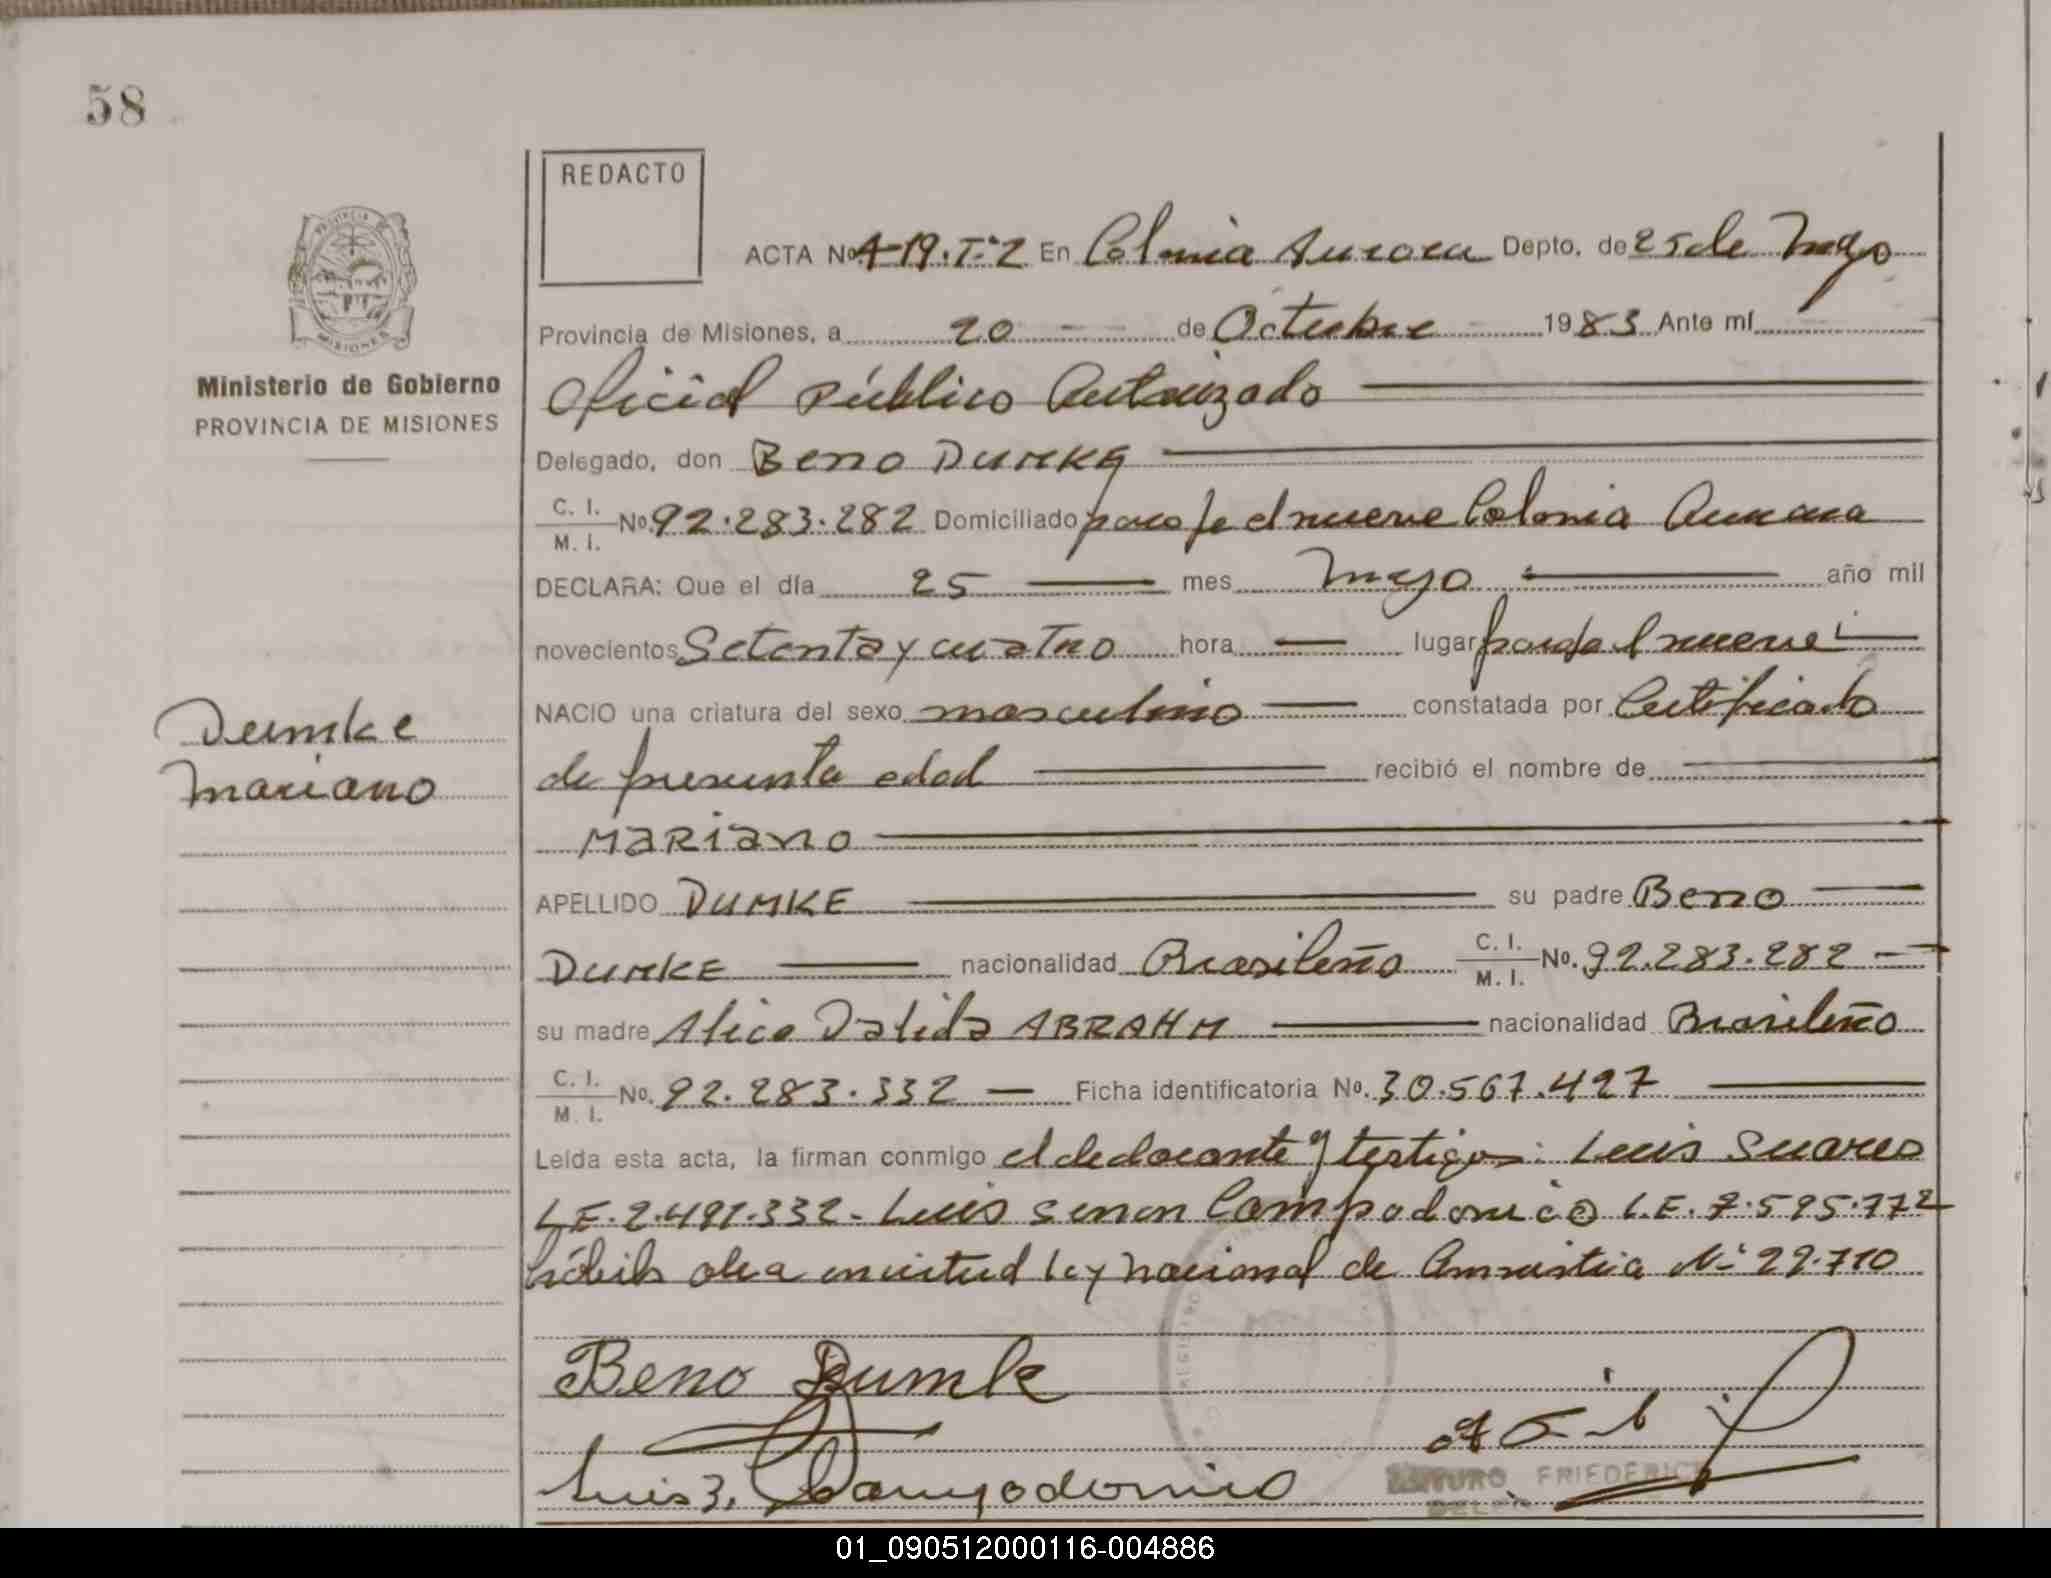 58
REDACTO
ACTA No. 419.T:2 En Colonia Aurora Depto. de 25 de Mayo
Provincia de Misiones, a 20 de Octubre 1983 Ante mí
Oficial Público Autorizado
Ministerio de Gobierno
PROVINCIA DE MISIONES
Delegado, don Beno DUMKE
C. I. / M. I. No. 92.283.282 Domiciliado paraje el nueve Colonia Aurora
DECLARA: Que el día 25 mes Mayo año mil
novecientos Setenta y cuatro hora lugar paraje el nueve
NACIO una criatura del sexo masculino constatada por Certificado
de presunta edad recibió el nombre de
Dumke
Mariano
MARIANO
APELLIDO DUMKE su padre Beno
DUMKE nacionalidad Brasileño C. I. / M. I. No. 92.283.282
su madre Alica Dalida ABRAHM nacionalidad Brasileño
C. I. / M. I. No. 92.283.332 Ficha identificatoria No. 30.567.427
Leída esta acta, la firman conmigo el declarante y testigos: Luis Suares
L.E. 2.491.332. Luis Campodonico L.E. 7.595.772
ley nacional de Amnistia N° 22.710
Beno Dumke
Luis Z. Campodonico
ARTURO FRIEDERICH
01_090512000116-004886